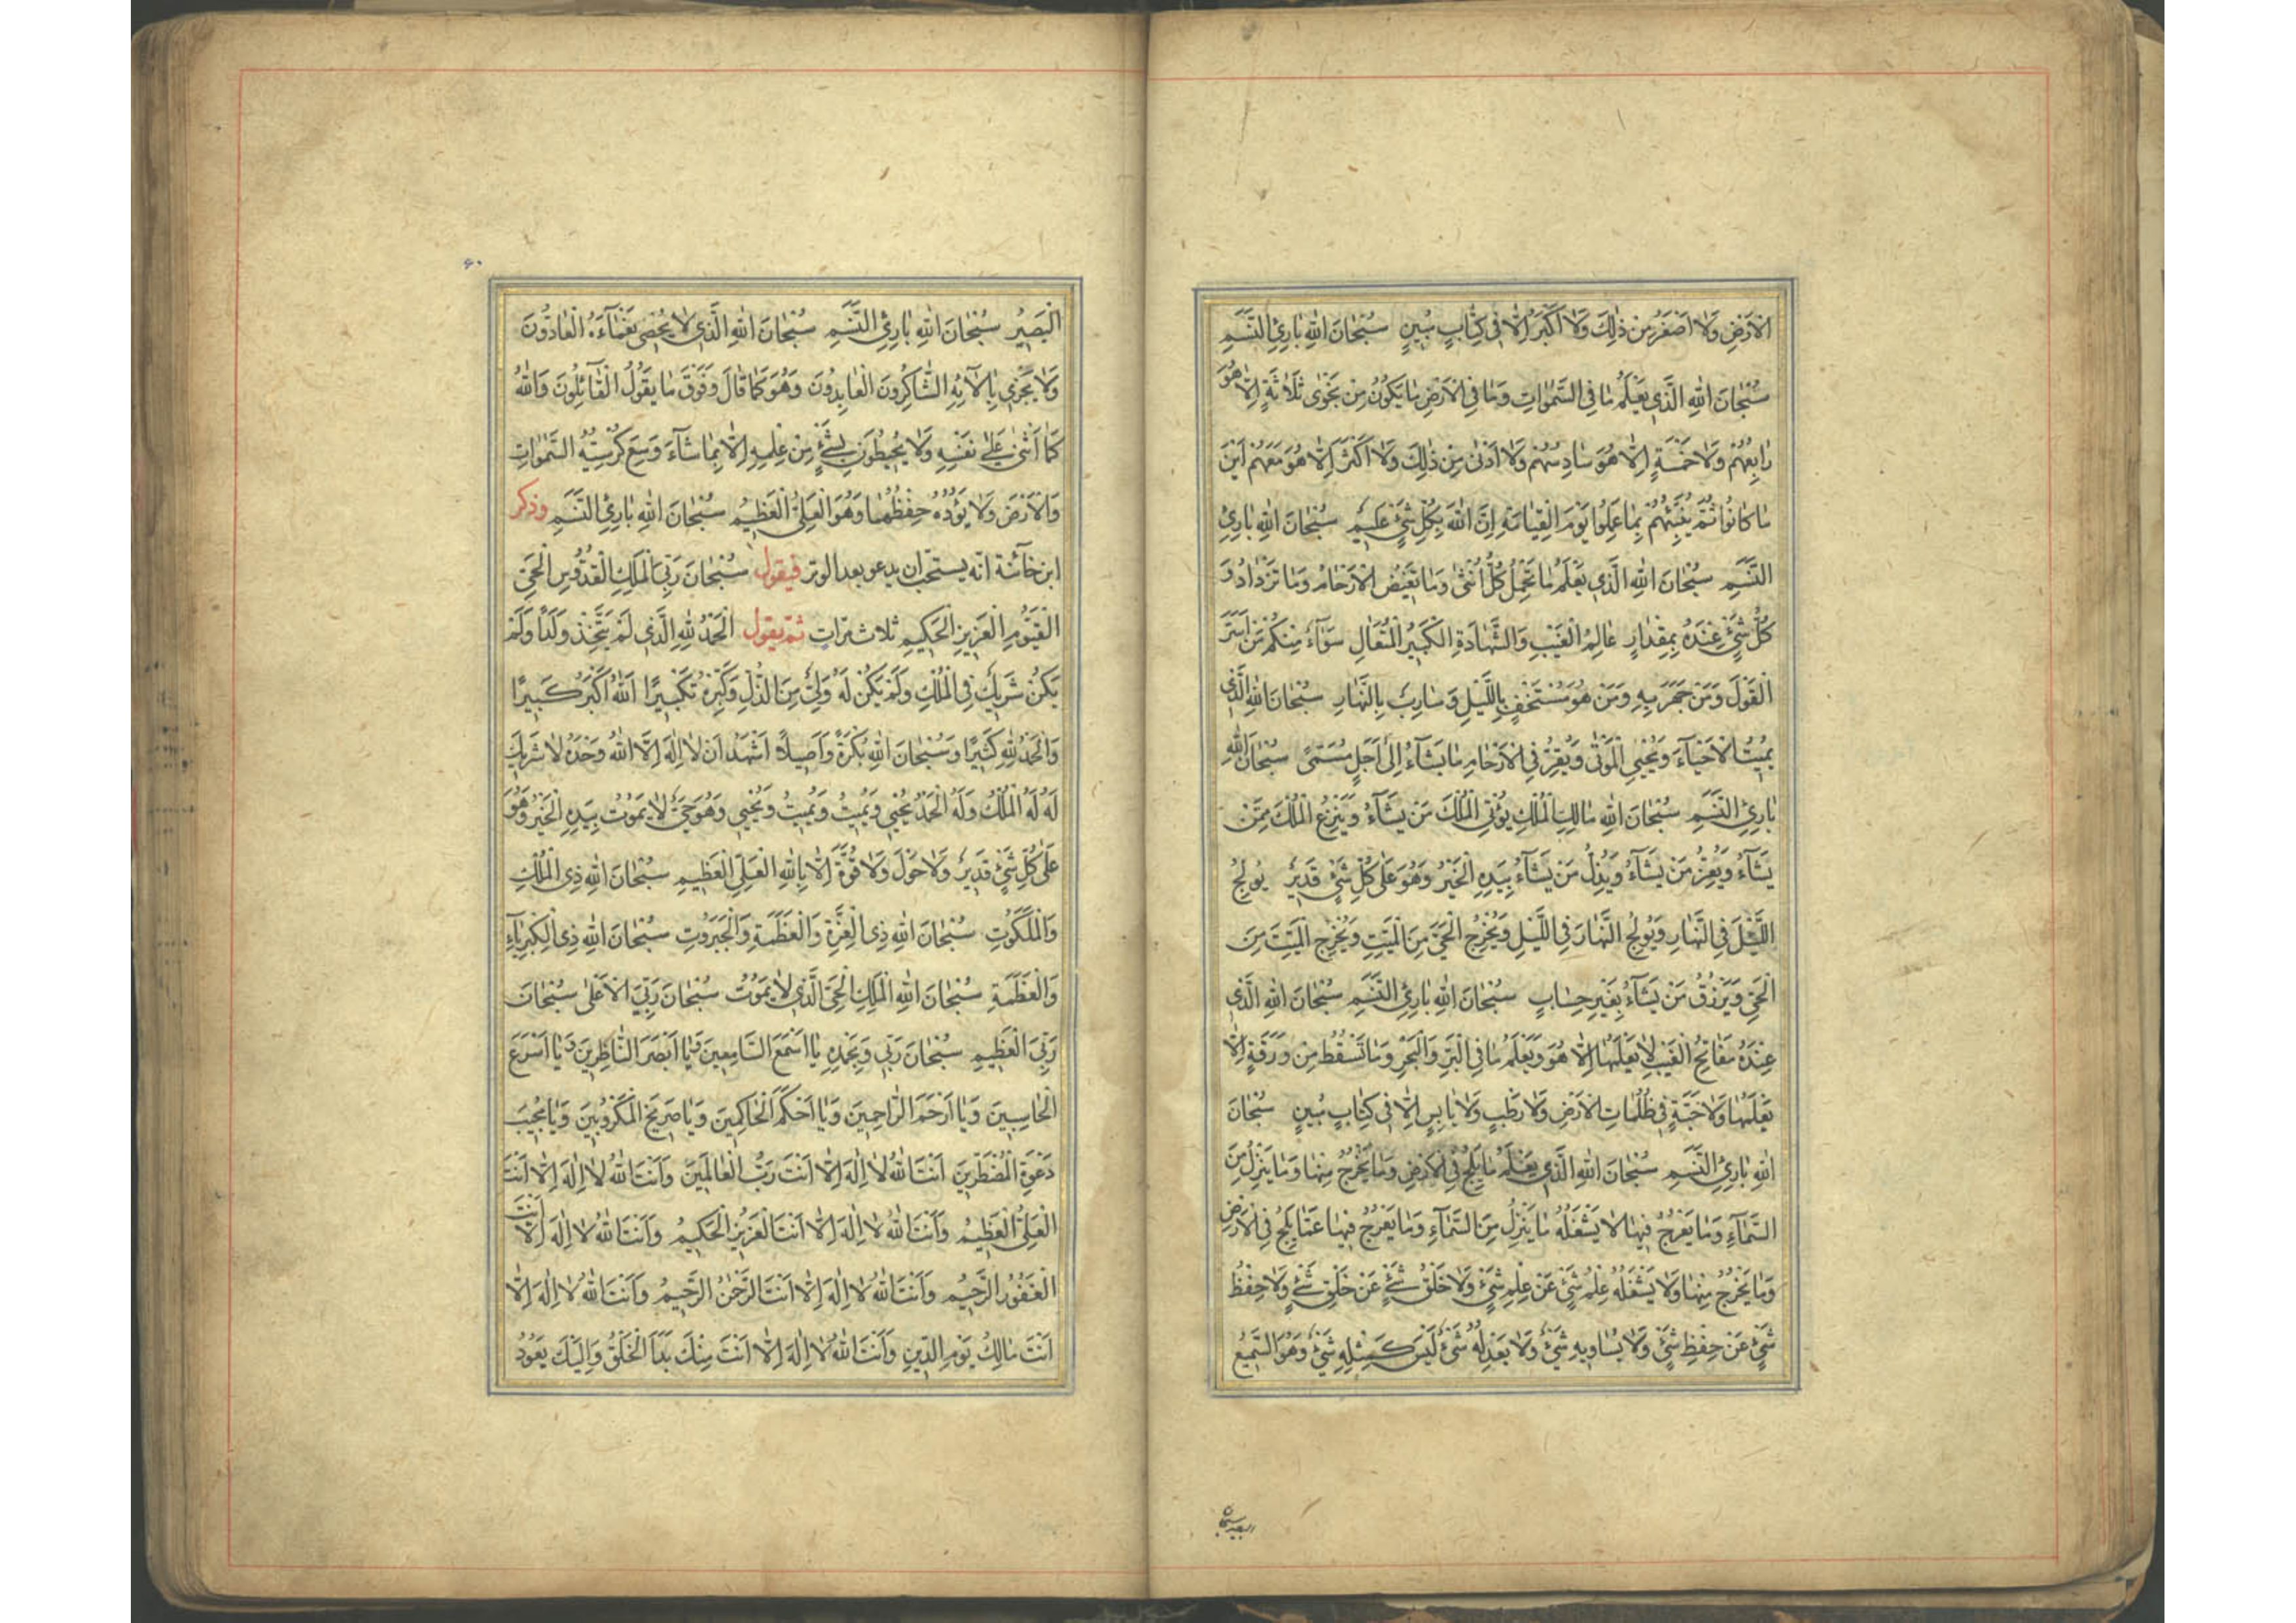 الْاَرْضِ وَلَا اَصْغَرُ مِنْ ذٰلِكَ وَلَا اَكْبَرُ اِلَّا فِي كِتَابٍ مُبِينٍ سُبْحَانَ اللهِ بَارِئِ النَّسَمِ
سُبْحَانَ اللهِ الَّذِي يَعْلَمُ مَا فِي السَّمٰوَاتِ وَمَا فِي الْاَرْضِ مَا يَكُونُ مِنْ نَجْوٰى ثَلَاثَةٍ اِلَّا هُوَ
رَابِعُهُمْ وَلَا خَمْسَةٍ اِلَّا هُوَ سَادِسُهُمْ وَلَا اَدْنٰى مِنْ ذٰلِكَ وَلَا اَكْثَرَ اِلَّا هُوَ مَعَهُمْ اَيْنَ
مَا كَانُوا ثُمَّ يُنَبِّئُهُمْ بِمَا عَمِلُوا يَوْمَ الْقِيَامَةِ اِنَّ اللهَ بِكُلِّ شَيْءٍ عَلِيمٌ سُبْحَانَ اللهِ بَارِئِ
النَّسَمِ سُبْحَانَ اللهِ الَّذِي يَعْلَمُ مَا تَحْمِلُ كُلُّ اُنْثٰى وَمَا تَغِيضُ الْاَرْحَامُ وَمَا تَزْدَادُ وَ
كُلُّ شَيْءٍ عِنْدَهُ بِمِقْدَارٍ عَالِمُ الْغَيْبِ وَالشَّهَادَةِ الْكَبِيرُ الْمُتَعَالِ سَوَاءٌ مِنْكُمْ مَنْ اَسَرَّ
الْقَوْلَ وَمَنْ جَهَرَ بِهِ وَمَنْ هُوَ مُسْتَخْفٍ بِاللَّيْلِ وَسَارِبٌ بِالنَّهَارِ سُبْحَانَ اللهِ الَّذِي
يُمِيتُ الْاَحْيَاءَ وَيُحْيِي الْمَوْتٰى وَيُقِرُّ فِي الْاَرْحَامِ مَا يَشَاءُ اِلٰى اَجَلٍ مُسَمًّى سُبْحَانَ اللهِ
بَارِئِ النَّسَمِ سُبْحَانَ اللهِ مَالِكِ الْمُلْكِ يُؤْتِي الْمُلْكَ مَنْ يَشَاءُ وَيَنْزِعُ الْمُلْكَ مِمَّنْ
يَشَاءُ وَيُعِزُّ مَنْ يَشَاءُ وَيُذِلُّ مَنْ يَشَاءُ بِيَدِهِ الْخَيْرُ وَهُوَ عَلٰى كُلِّ شَيْءٍ قَدِيرٌ يُولِجُ
اللَّيْلَ فِي النَّهَارِ وَيُولِجُ النَّهَارَ فِي اللَّيْلِ وَيُخْرِجُ الْحَيَّ مِنَ الْمَيِّتِ وَيُخْرِجُ الْمَيِّتَ مِنَ
الْحَيِّ وَيَرْزُقُ مَنْ يَشَاءُ بِغَيْرِ حِسَابٍ سُبْحَانَ اللهِ بَارِئِ النَّسَمِ سُبْحَانَ اللهِ الَّذِي
عِنْدَهُ مَفَاتِحُ الْغَيْبِ لَا يَعْلَمُهَا اِلَّا هُوَ وَيَعْلَمُ مَا فِي الْبَرِّ وَالْبَحْرِ وَمَا تَسْقُطُ مِنْ وَرَقَةٍ اِلَّا
يَعْلَمُهَا وَلَا حَبَّةٍ فِي ظُلُمَاتِ الْاَرْضِ وَلَا رَطْبٍ وَلَا يَابِسٍ اِلَّا فِي كِتَابٍ مُبِينٍ سُبْحَانَ
اللهِ بَارِئِ النَّسَمِ سُبْحَانَ اللهِ الَّذِي يَعْلَمُ مَا يَلِجُ فِي الْاَرْضِ وَمَا يَخْرُجُ مِنْهَا وَمَا يَنْزِلُ مِنَ
السَّمَاءِ وَمَا يَعْرُجُ فِيهَا لَا يَشْغَلُهُ مَا يَنْزِلُ مِنَ السَّمَاءِ وَمَا يَعْرُجُ فِيهَا عَمَّا يَلِجُ فِي الْاَرْضِ
وَمَا يَخْرُجُ مِنْهَا وَلَا يَشْغَلُهُ عِلْمُ شَيْءٍ عَنْ عِلْمِ شَيْءٍ وَلَا خَلْقُ شَيْءٍ عَنْ خَلْقِ شَيْءٍ وَلَا حِفْظُ
شَيْءٍ عَنْ حِفْظِ شَيْءٍ وَلَا يُسَاوِيهِ شَيْءٌ وَلَا يَعْدِلُهُ شَيْءٌ لَيْسَ كَمِثْلِهِ شَيْءٌ وَهُوَ السَّمِيعُ
البصير سبحان
٦٠
الْبَصِيرُ سُبْحَانَ اللهِ بَارِئِ النَّسَمِ سُبْحَانَ اللهِ الَّذِي لَا يُحْصِي نَعْمَاءَهُ الْعَادُّونَ
وَلَا يَجْزِي بِاٰلَائِهِ الشَّاكِرُونَ الْعَابِدُونَ وَهُوَ كَمَا قَالَ وَفَوْقَ مَا يَقُولُ الْقَائِلُونَ وَاللهُ
كَمَا اَثْنٰى عَلٰى نَفْسِهِ وَلَا يُحِيطُونَ بِشَيْءٍ مِنْ عِلْمِهِ اِلَّا بِمَا شَاءَ وَسِعَ كُرْسِيُّهُ السَّمٰوَاتِ
وَالْاَرْضَ وَلَا يَؤُدُهُ حِفْظُهُمَا وَهُوَ الْعَلِيُّ الْعَظِيمُ سُبْحَانَ اللهِ بَارِئِ النَّسَمِ وذكر
ابن خانبة انّه يستحبّ ان يدعو بعد الوتر فيقول سُبْحَانَ رَبِّيَ الْمَلِكِ الْقُدُّوسِ الْحَيِّ
الْقَيُّومِ الْعَزِيزِ الْحَكِيمِ ثلاث مرّات ثمّ يقول الْحَمْدُ لِلّٰهِ الَّذِي لَمْ يَتَّخِذْ وَلَدًا وَلَمْ
يَكُنْ شَرِيكٌ فِي الْمُلْكِ وَلَمْ يَكُنْ لَهُ وَلِيٌّ مِنَ الذُّلِّ وَكَبِّرْهُ تَكْبِيرًا اَللهُ اَكْبَرُ كَبِيرًا
وَالْحَمْدُ لِلّٰهِ كَثِيرًا وَسُبْحَانَ اللهِ بُكْرَةً وَاَصِيلًا اَشْهَدُ اَنْ لَا اِلٰهَ اِلَّا اللهُ وَحْدَهُ لَا شَرِيكَ
لَهُ لَهُ الْمُلْكُ وَلَهُ الْحَمْدُ يُحْيِي وَيُمِيتُ وَيُمِيتُ وَيُحْيِي وَهُوَ حَيٌّ لَا يَمُوتُ بِيَدِهِ الْخَيْرُ وَهُوَ
عَلٰى كُلِّ شَيْءٍ قَدِيرٌ وَلَا حَوْلَ وَلَا قُوَّةَ اِلَّا بِاللهِ الْعَلِيِّ الْعَظِيمِ سُبْحَانَ اللهِ ذِي الْمُلْكِ
وَالْمَلَكُوتِ سُبْحَانَ اللهِ ذِي الْعِزَّةِ وَالْعَظَمَةِ وَالْجَبَرُوتِ سُبْحَانَ اللهِ ذِي الْكِبْرِيَاءِ
وَالْعَظَمَةِ سُبْحَانَ اللهِ الْمَلِكِ الْحَيِّ الَّذِي لَا يَمُوتُ سُبْحَانَ رَبِّيَ الْاَعْلٰى سُبْحَانَ
رَبِّيَ الْعَظِيمِ سُبْحَانَ رَبِّي وَبِحَمْدِهِ يَا اَسْمَعَ السَّامِعِينَ وَيَا اَبْصَرَ النَّاظِرِينَ وَيَا اَسْرَعَ
الْحَاسِبِينَ وَيَا اَرْحَمَ الرَّاحِمِينَ وَيَا اَحْكَمَ الْحَاكِمِينَ وَيَا صَرِيخَ الْمَكْرُوبِينَ وَيَا مُجِيبَ
دَعْوَةِ الْمُضْطَرِّينَ اَنْتَ اللهُ لَا اِلٰهَ اِلَّا اَنْتَ رَبُّ الْعَالَمِينَ وَاَنْتَ اللهُ لَا اِلٰهَ اِلَّا اَنْتَ
الْعَلِيُّ الْعَظِيمُ وَاَنْتَ اللهُ لَا اِلٰهَ اِلَّا اَنْتَ الْعَزِيزُ الْحَكِيمُ وَاَنْتَ اللهُ لَا اِلٰهَ اِلَّا اَنْتَ
الْغَفُورُ الرَّحِيمُ وَاَنْتَ اللهُ لَا اِلٰهَ اِلَّا اَنْتَ الرَّحْمٰنُ الرَّحِيمُ وَاَنْتَ اللهُ لَا اِلٰهَ اِلَّا
اَنْتَ مَالِكُ يَوْمِ الدِّينِ وَاَنْتَ اللهُ لَا اِلٰهَ اِلَّا اَنْتَ مِنْكَ بَدَاَ الْخَلْقُ وَاِلَيْكَ يَعُودُ